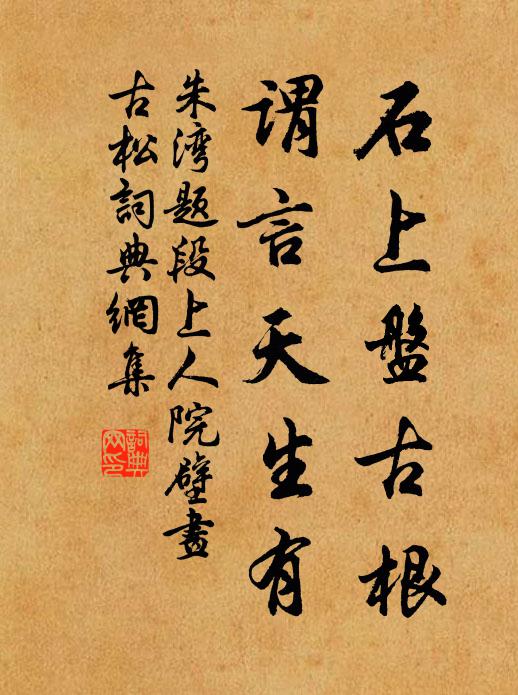 石上盤古根
謂言天生有
朱湾题段上人院壁畫
古松詞典網集
詞典网印